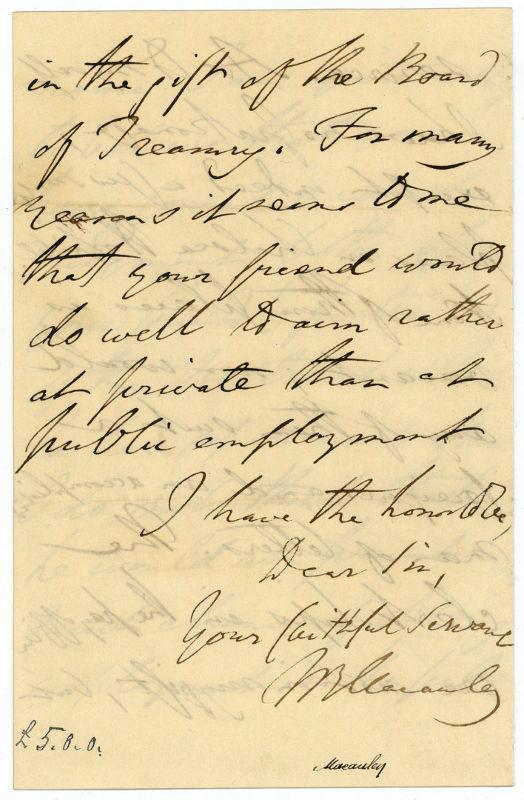 in the gift of the Board
of Treasury. For many
reasons it seems to me
that your friend would
do well to aim rather
at private than at
public employment
I have the honor to be,
Dear Sir,
Your faithful Servant
T B Macaulay
£5.0.0.
Macaulay